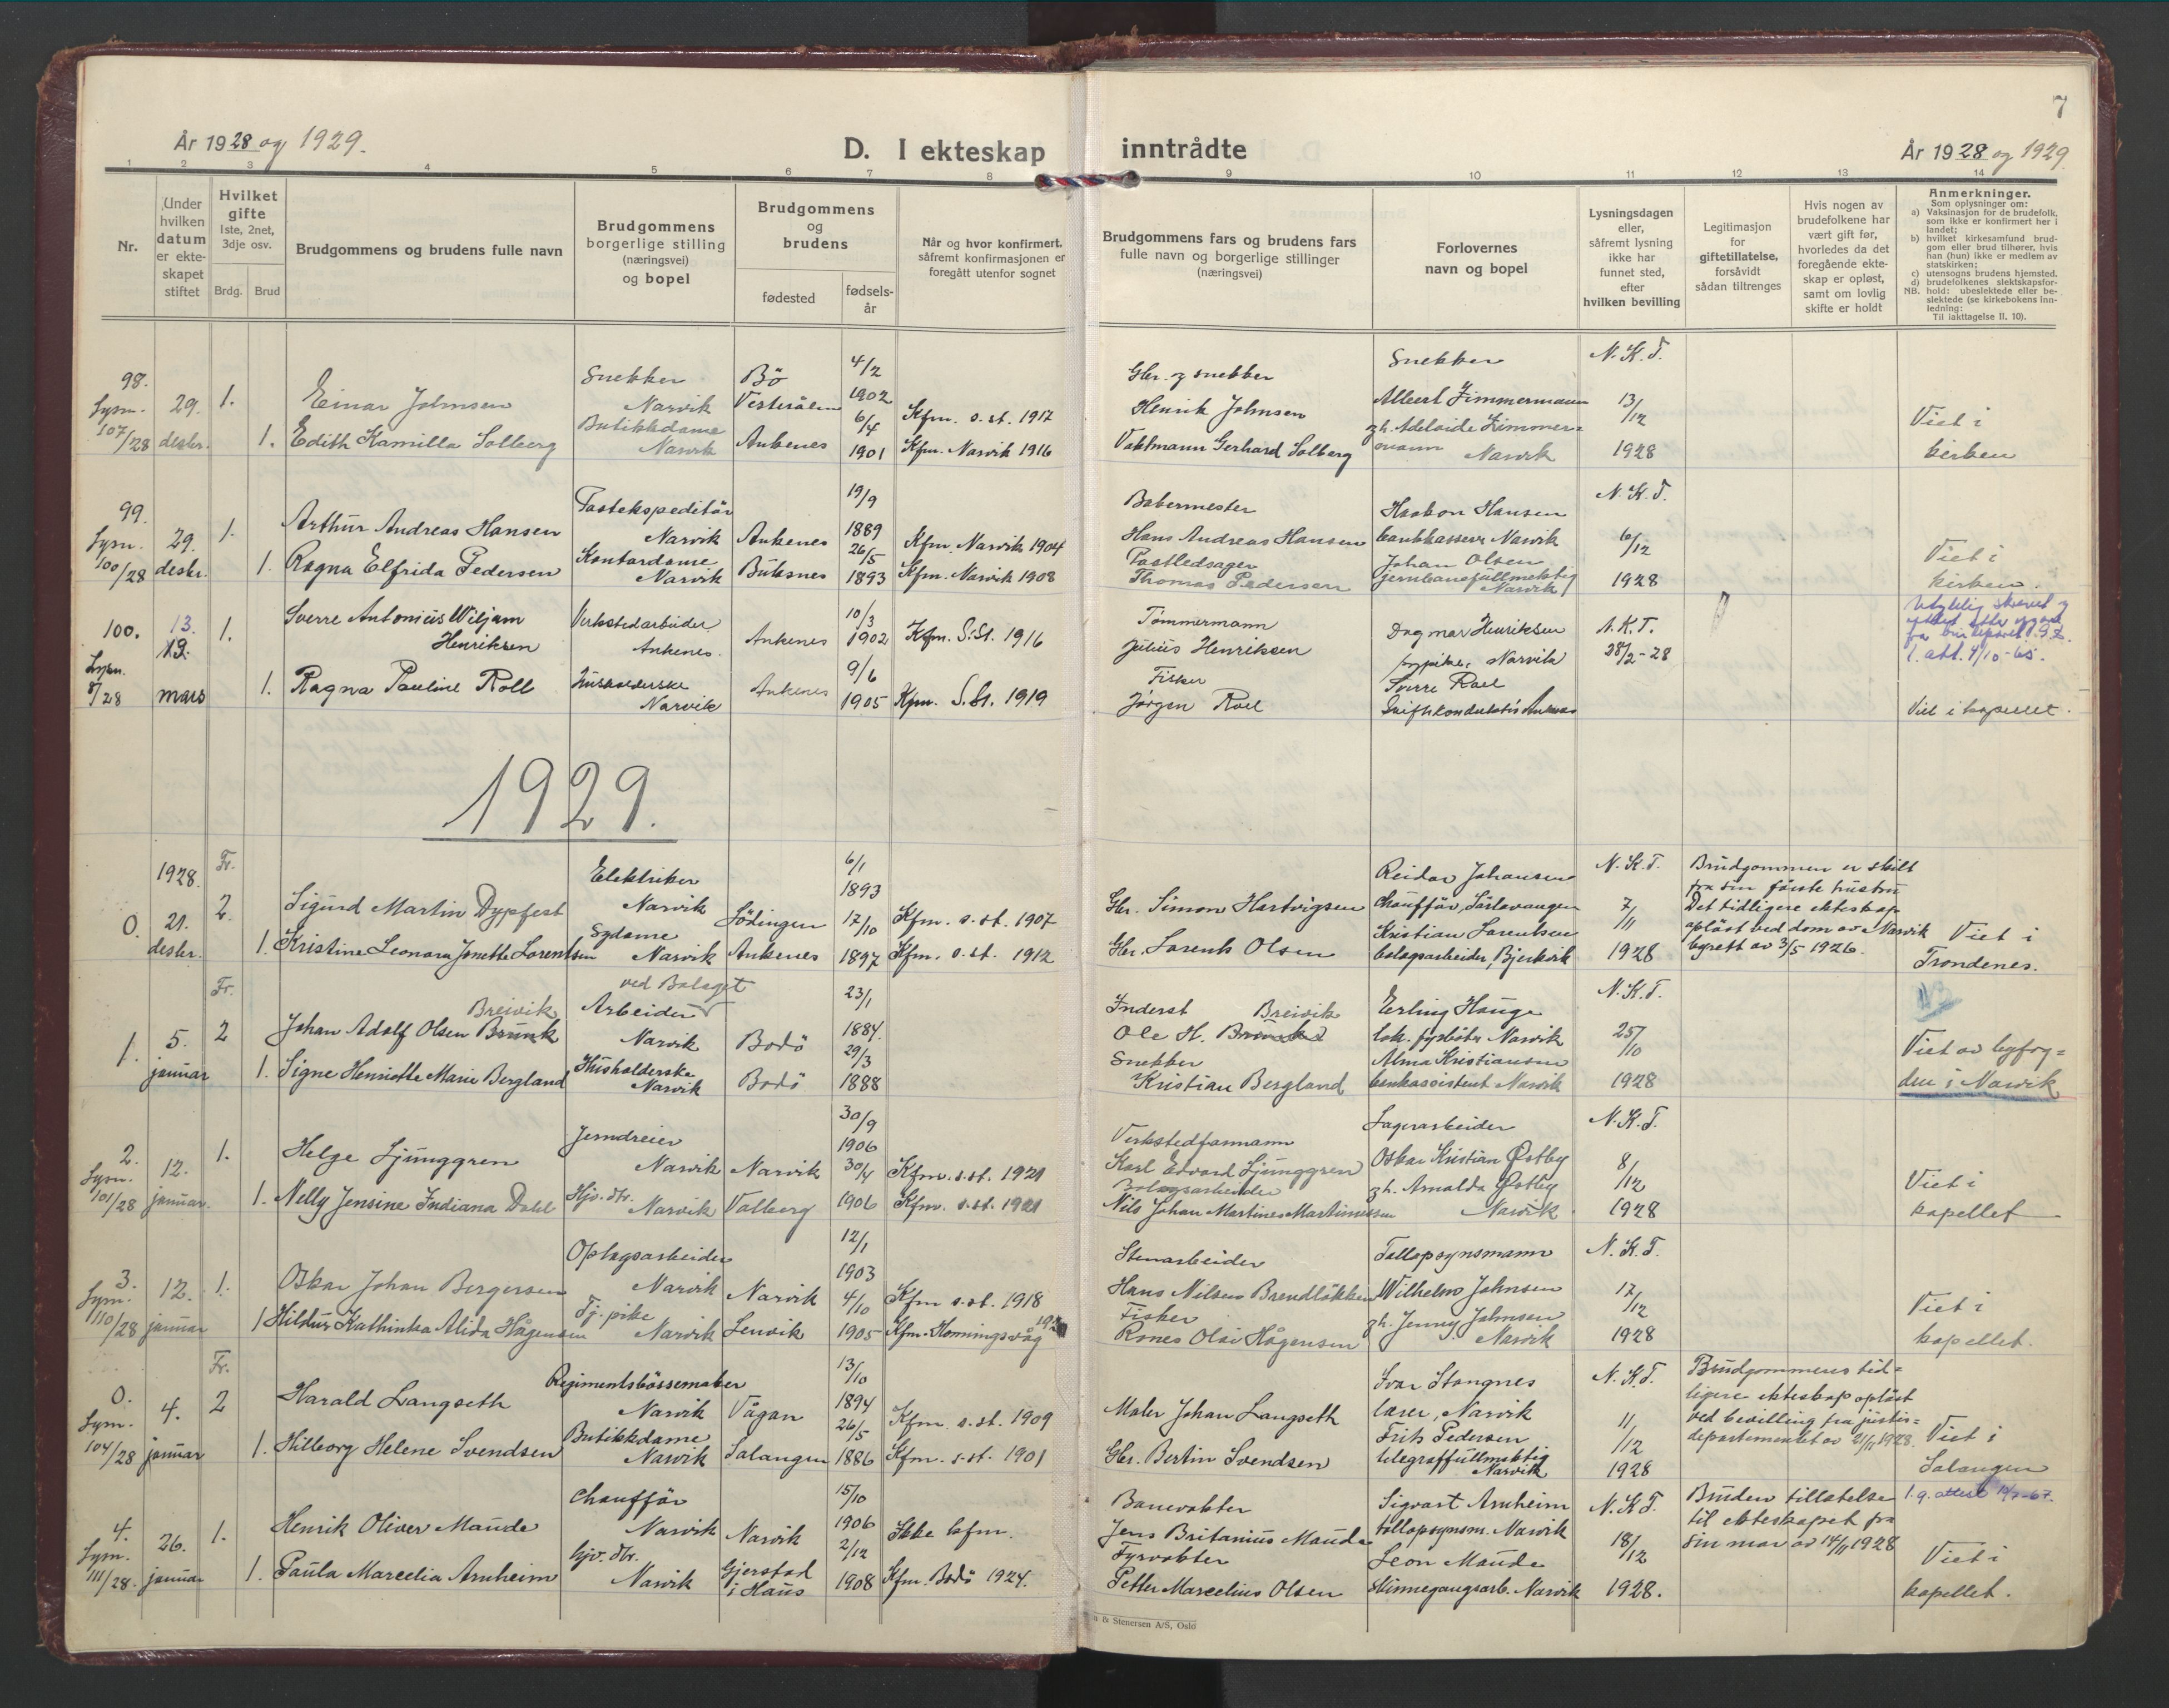 7
År 1928 og 1929.
D. I ekteskap inntrådte
År 1928 og 1929.
1 2 3 4 5 6 7 8 9 10 11 12 13 14
Nr.
Under hvilken datum er ekte-skapet stiftet
Hvilket gifte 1ste, 2net, 3dje osv.
Brdg. Brud
Brudgommens og brudens fulle navn
Brudgommens borgerlige stilling (næringsvei) og bopel
Brudgommens og brudens
fødested
fødsels-år
Når og hvor konfirmert, såfremt konfirmasjonen er foregått utenfor sognet
Brudgommens fars og brudens fars fulle navn og borgerlige stillinger (næringsvei)
Forlovernes navn og bopel
Lysningsdagen eller, såfremt lysning ikke har funnet sted, efter hvilken bevilling
Legitimasjon for giftetillatelse, forsåvidt sådan tiltrenges
Hvis nogen av brudefolkene har vært gift før, hvorledes da det foregående ekte-skap er opløst, samt om lovlig skifte er holdt
Anmerkninger.
Som oplysninger om:
a) Vaksinasjon for de brudefolk, som ikke er konfirmert her i landet;
b) hvilket kirkesamfund brud-gom eller brud tilhører, hvis han (hun) ikke er medlem av statskirken;
c) utensogns brudens hjemsted.
d) brudefolkenes slektskapsfor-hold: ubeslektede eller be-slektede (se kirkebokens inn-ledning:
NB.
Til iakttagelse II. 10).
98. Lysn. 107/28
29. desbr.
1. Einar Johnsen
Snekker Narvik
Bö Vesterålen
4/2 1902
Kfm. s. st. 1917
Gbr. og snekker Henrik Johnsen
1. Edith Kamilla Solberg
Butikkdame Narvik
Ankenes
6/4 1901
Kfm. Narvik 1916
Vaktmann Gerhard Solberg
Snekker Albert Zimmermann
og h. Adelaide Zimmer=mann Narvik
N. K. T. 13/12 1928
Viet i kirken
99. Lysn. 100/28
29. desbr.
1. Arthur Andreas Hansen
Postekspeditör Narvik
Ankenes
19/9 1889
Kfm. Narvik 1904
Bakermester Hans Andreas Hansen
1. Ragna Elfrida Pedersen
Kontordame Narvik
Buksnes
26/5 1893
Kfm. Narvik 1908
Postledsager Thomas Pedersen
Haakon Hansen bankkasserer Narvik
Johan Olsen jernbanefullmektig Narvik
N. K. T. 6/12 1928
Viet i kirken.
100. Lysn. 8/28
13. 13. mars
1. Sverre Antonius Wiljam Henriksen
Verkstedarbeider Ankenes.
Ankenes
10/3 1902
Kfm. S. St. 1916
Tømmermann Julius Henriksen
1. Ragna Pauline Roll
Husholderske Narvik
Ankenes
9/6 1905
Kfm. S. St. 1919
Fisker Jørgen Roll
Dagmar Henriksen Narvik
Sverre Roll
N. K. T. 28/2-28
1. att. 4/10-65.
Viet i kapellet.
1929.
0.
1928. 21. desbr.
Fr. 2. Sigurd Martin Dypfest
Elektriker Narvik
Lödingen
6/1 1893
Kfm. s. st. 1907
Gbr. Simon Hartvigsen
1. Kristine Leonora Jonette Lorentsen
Sydame Narvik
Ankenes
17/10 1897
Kfm. s. st. 1912
Gbr. Lorents Olsen
Reidar Johansen chaufför, Sörlavangen
Kristian Lorentsen bolagsarbeider, Bjerkvik
N. K. T. 7/11 1928
Brudgommen er skilt fra sin förste hustru
Det tidligere ekteskap oplöst ved dom av Narvik byrett av 3/5 1926.
Viet i Trondenes.
1.
5. januar
Fr. 2 Johan Adolf Olsen Brunk Breivik
ved Bolaget Arbeider Narvik
Bodö
23/1 1884.
Inderst Ole H. Breivik
1. Signe Henriette Marie Bergland
Husholderske Narvik
Bodö
29/3 1888
Snekker Kristian Bergland
Erling Hauge lok. fyrböter Narvik
Alma Kristiansen bankassistent Narvik
N. K. T. 25/10 1928
Viet av byfog=den i Narvik
2. Lysn. 101/28
12. januar.
1. Helge Ljunggren
Jerndreier Narvik
Narvik
30/9 1906
Kfm. s. st. 1921
Verkstedformann Karl Edvard Ljunggren
1. Nelly Jensine Indiana Dahl
Hjv. dtr. Narvik
Valberg
30/4 1906
Kfm. s. st. 1921
Bolagsarbeider Nils Johan Martines Martinussen
Lagerarbeider Oskar Kristian Østby
og h. Arnalda Østby Narvik
N. K. T. 8/12 1928
Viet i kapellet
3. Lysn. 110/28
12. januar
1. Oskar Johan Bergersen
Oplagsarbeider Narvik
Narvik
12/1 1903
Kfm s. st. 1918
Stenarbeider Hans Nilsen Brendlökken
1 Hildur Kathinka Alida Hågensen
Tj. pike Narvik
Lenvik
4/10 1905
Kfm. Honningsvåg
Fisker Rones Olai Hågensen
Tollopsynsmann Wilhelm Johnsen
og h. Jenny Johnsen Narvik
N. K. T. 17/12 1928
Viet i kapellet.
0. Lysn. 104/28
4. januar
Fr. 2 Harald Langseth
Regimentsbössemaker Narvik
Vågan
13/10 1894
Kfm. s. st. 1909
Maler Johan Langseth
1. Hilborg Helene Svendsen
Butikkdame Narvik
Salangen
26/5 1886
Kfm. s. st. 1901
Gbr. Bertin Svendsen
Ivar Stangnes lærer, Narvik
Frits Pedersen telegraffullmektig Narvik
N. K. T. 11/12 1928
Brudgommens tid=ligere ekteskap oplöst ved bevilling fra justis=departementet av 21/11 1928.
Viet i Salangen
4. Lysn. 111/28.
26. januar
1. Henrik Oliver Maude
Chaufför Narvik
Narvik
15/10 1906
Ikke kfm.
Banevokter Jens Britanius Maude
1. Paula Marcelia Arnheim
Hjv. dtr. Narvik
Gjerstad i Haus
2/12 1908
Kfm. Bodö 1924.
Fyrvokter Petter Marcelius Olsen
Sigvart Arnheim tollopsynsm. Narvik
Leon Maude skinnegangsarb. Narvik
N. K. T. 18/12 1928.
Bruden tillatelse til ekteskapet fra sin mor av 14/11 1928
1. g. attest 14/7-67.
Viet i kapellet.
& Stenersen A/S, Oslo